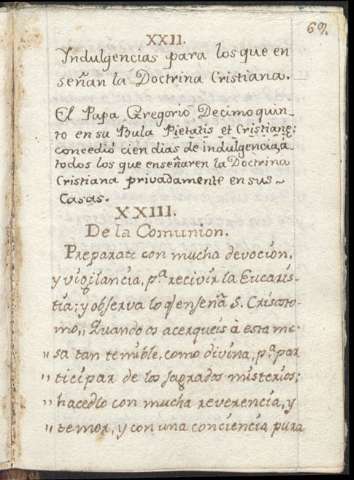 69.
XXII.
Indulgencias para los que en
señan la Doctrina Cristiana.
El Papa Gregorio Decimoquin_
to en su Bula Pietatis et Cristiane;
concedió cien dias de indulgencia, a
todos los que enseñaren la Doctrina
Cristiana privadamente en sus~
Casas.
XXIII.
De la Comunion.
Preparate con mucha devocion,
y vigilancia, pª recivir la Eucaris
tía; y observa lo q enseñá S. Crisosto-
mo,, Quando os acerqueis à esta me-
,, sa tan temible, como divina, pª par
,, ticipar de los sagrados misterios;
,, hacedlo con mucha reverencia, y
,, temor, y con una conciencia pura